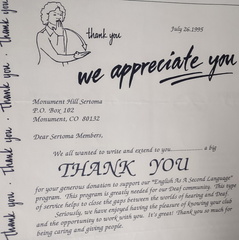 Thank you . Thank you . Thank you . Thank you . Thank you
thank you
July 26.1995
we appreciate you
Monument Hill Sertoma
P.O. Box 102
Monument, CO 80132
Dear Sertoma Members,
We all wanted to write and extend to you........ a big
THANK YOU
for your generous donation to support our "English As A Second Language"
program. This program is greatly needed for our Deaf community. This type
of service helps to close the gaps between the worlds of hearing and Deaf.
Seriously, we have enjoyed having the pleasure of knowing your club
and the opportunity to work with you. It's great! Thank you so much for
being caring and giving people.